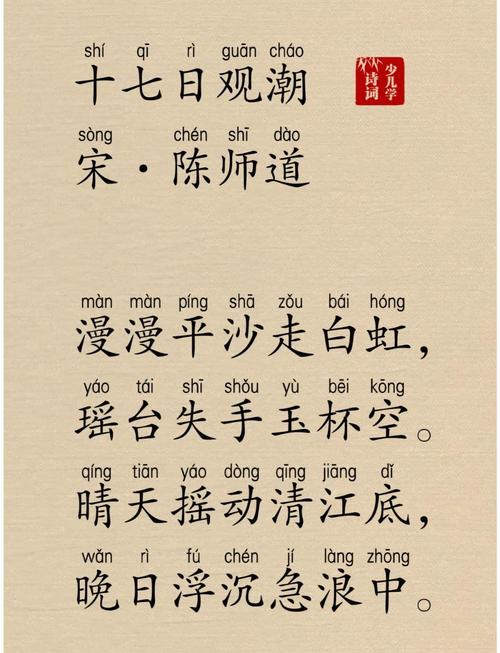 shí qī rì guān cháo
十七日观潮
少儿学
诗词
sòng chén shī dào
宋·陈师道
màn màn píng shā zǒu bái hóng
漫漫平沙走白虹，
yáo tái shī shǒu yù bēi kōng
瑶台失手玉杯空。
qíng tiān yáo dòng qīng jiāng dǐ
晴天摇动清江底，
wǎn rì fú chén jí làng zhōng
晚日浮沉急浪中。